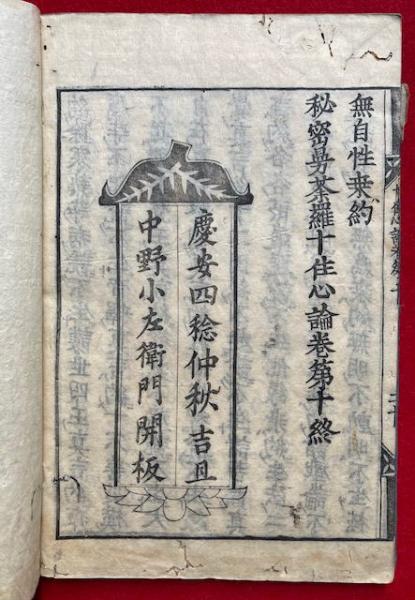 無自性来約
秘密曼荼羅十住心論卷第十終
慶安四稔仲秋吉旦
中野小左衛門開板